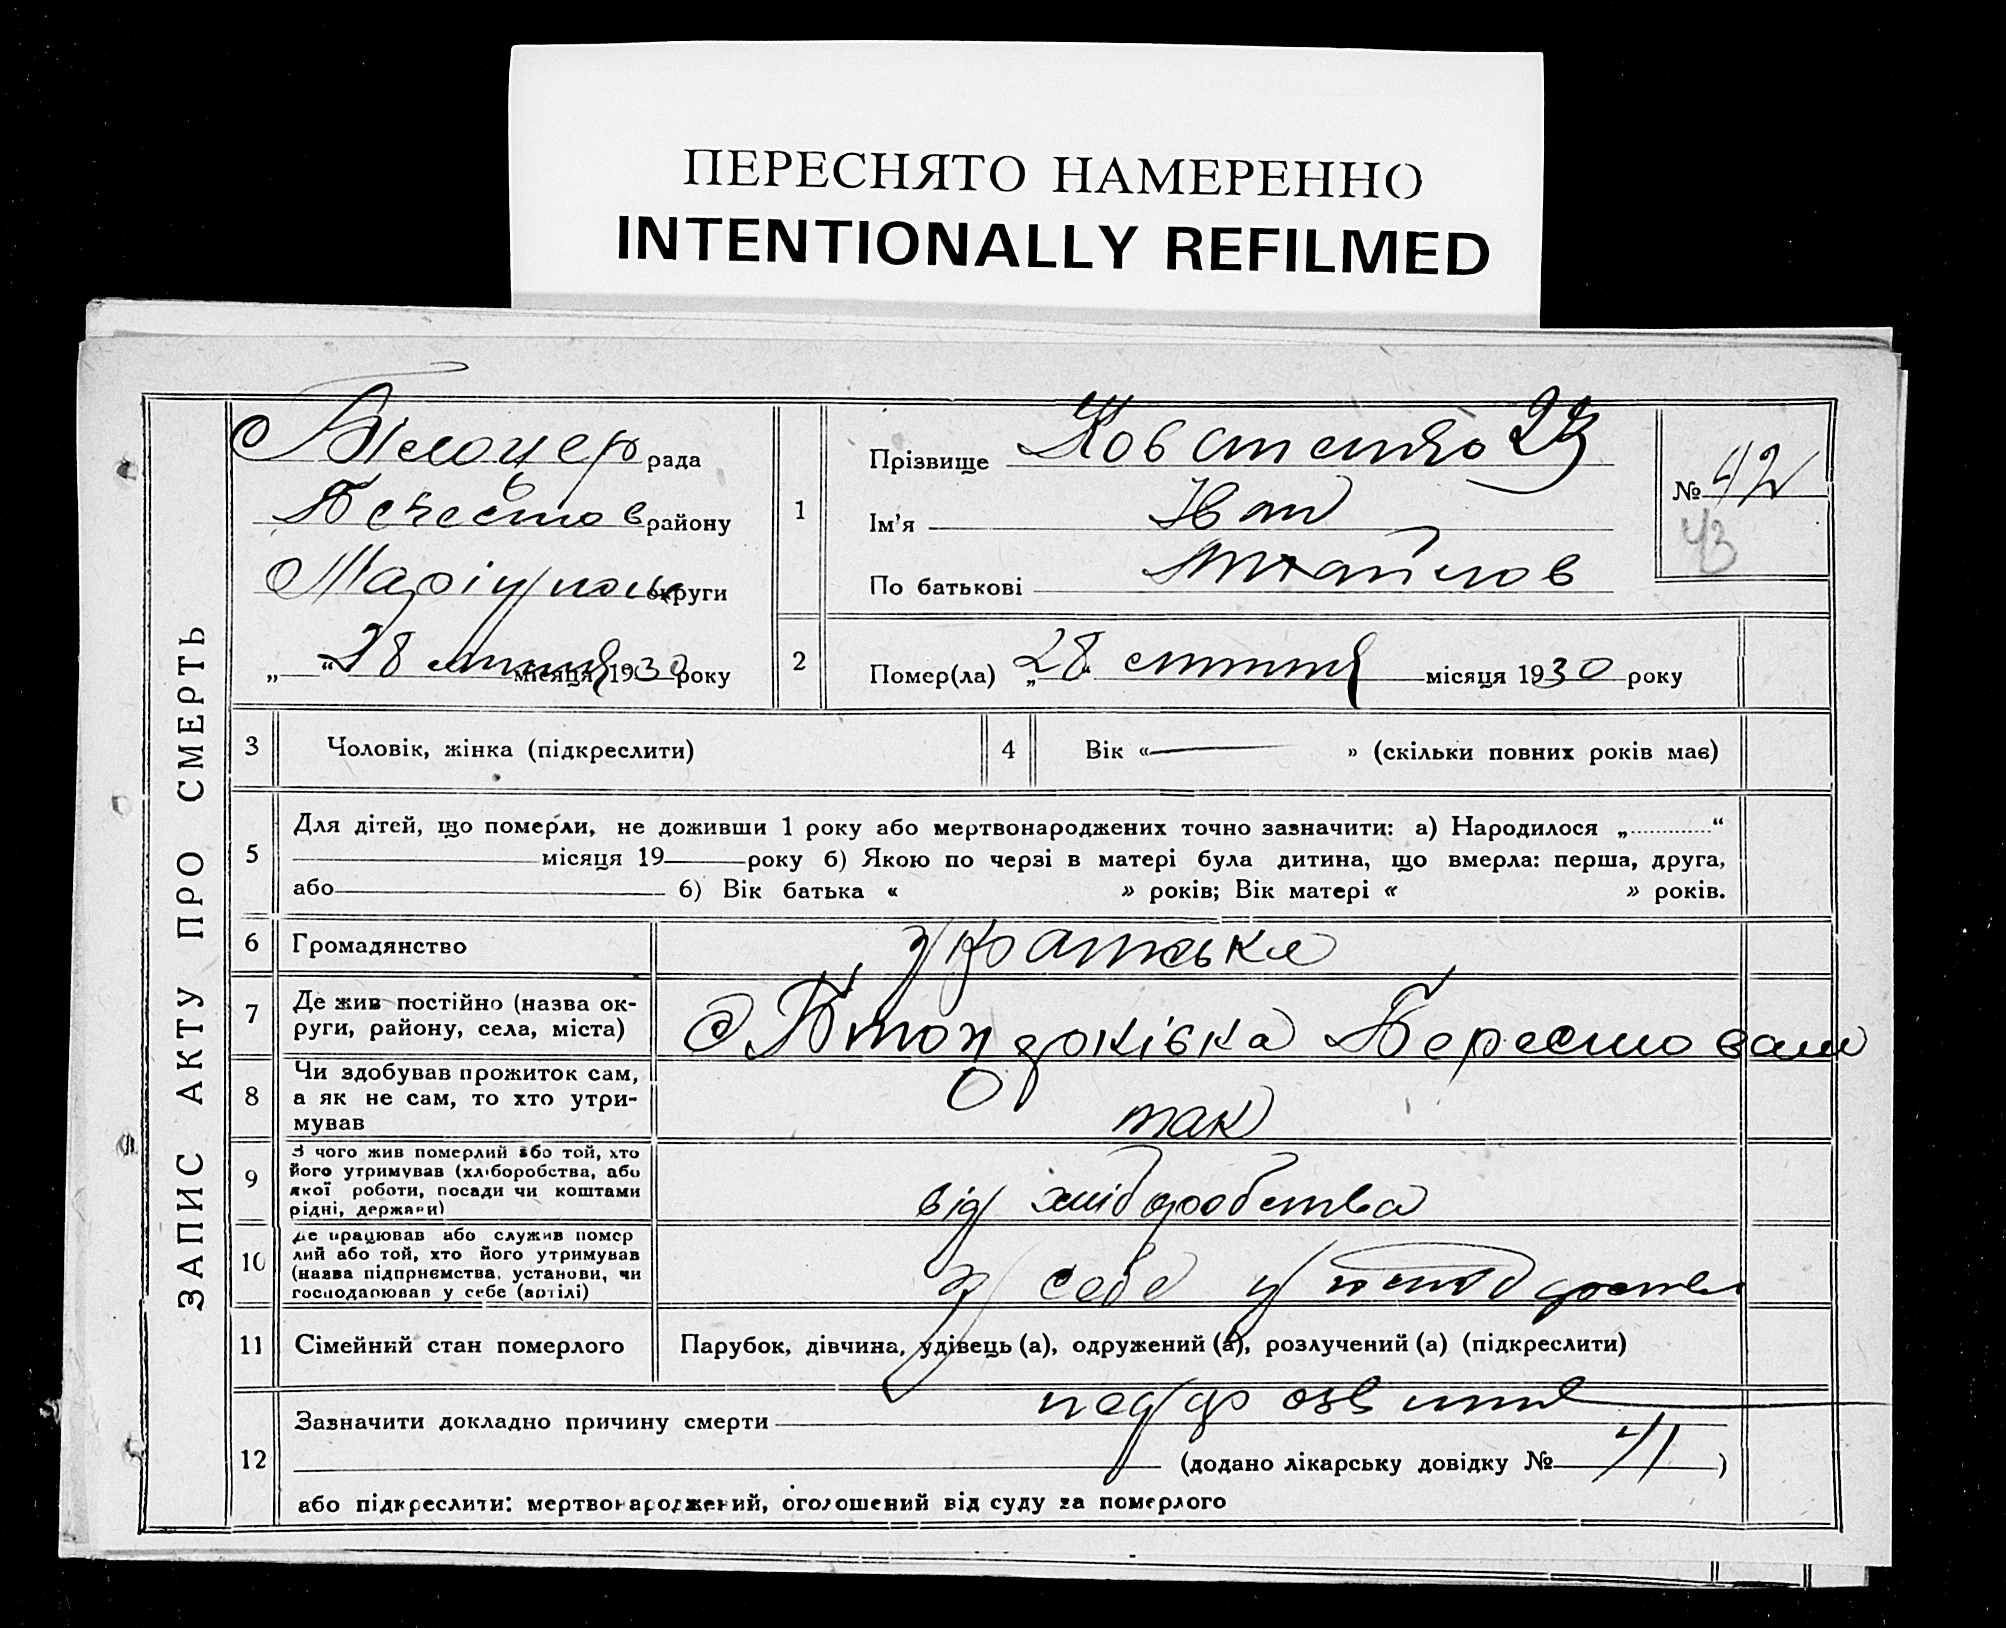 ПЕРЕСНЯТО НАМЕРЕННО
INTENTIONALLY REFILMED
ЗАПИС АКТУ ПРО СМЕРТЬ
Білоцер рада
району
Маріупол округи
„ “ 28 липня місяця 1930 року
1
Прізвище 23
Ім'я Іван
По батькові Михайлов
№ 42
43
2
Помер(ла) „28“ липня місяця 1930 року
3 Чоловік, жінка (підкреслити)
4 Вік « » (скільки повних років має)
5 Для дітей, що померли, не доживши 1 року або мертвонароджених точно зазначити: а) Народилося „............“
місяця 19 року б) Якою по черзі в матері була дитина, що вмерла: перша, друга,
або б) Вік батька « » років; Вік матері « » років.
6 Громадянство українське
7 Де жив постійно (назва ок-
руги, району, села, міста) с
8 Чи здобував прожиток сам,
а як не сам, то хто утри-
мував так
9 З чого жив померлий або той, хто
його утримував (хліборобства, або
якої роботи, посади чи коштами
рідні, держави) від хліборобства
10 Де працював або служив помер
лий або той, хто його утримував
(назва підприємства, установи, чи
господарював у себе (артілі) у себе у господарстві
11 Сімейний стан померлого Парубок, дівчина, удівець (а), одружений (а), розлучений (а) (підкреслити)
12 Зазначити докладно причину смерти
(додано лікарську довідку № 41)
або підкреслити: мертвонароджений, оголошений від суду за померлого